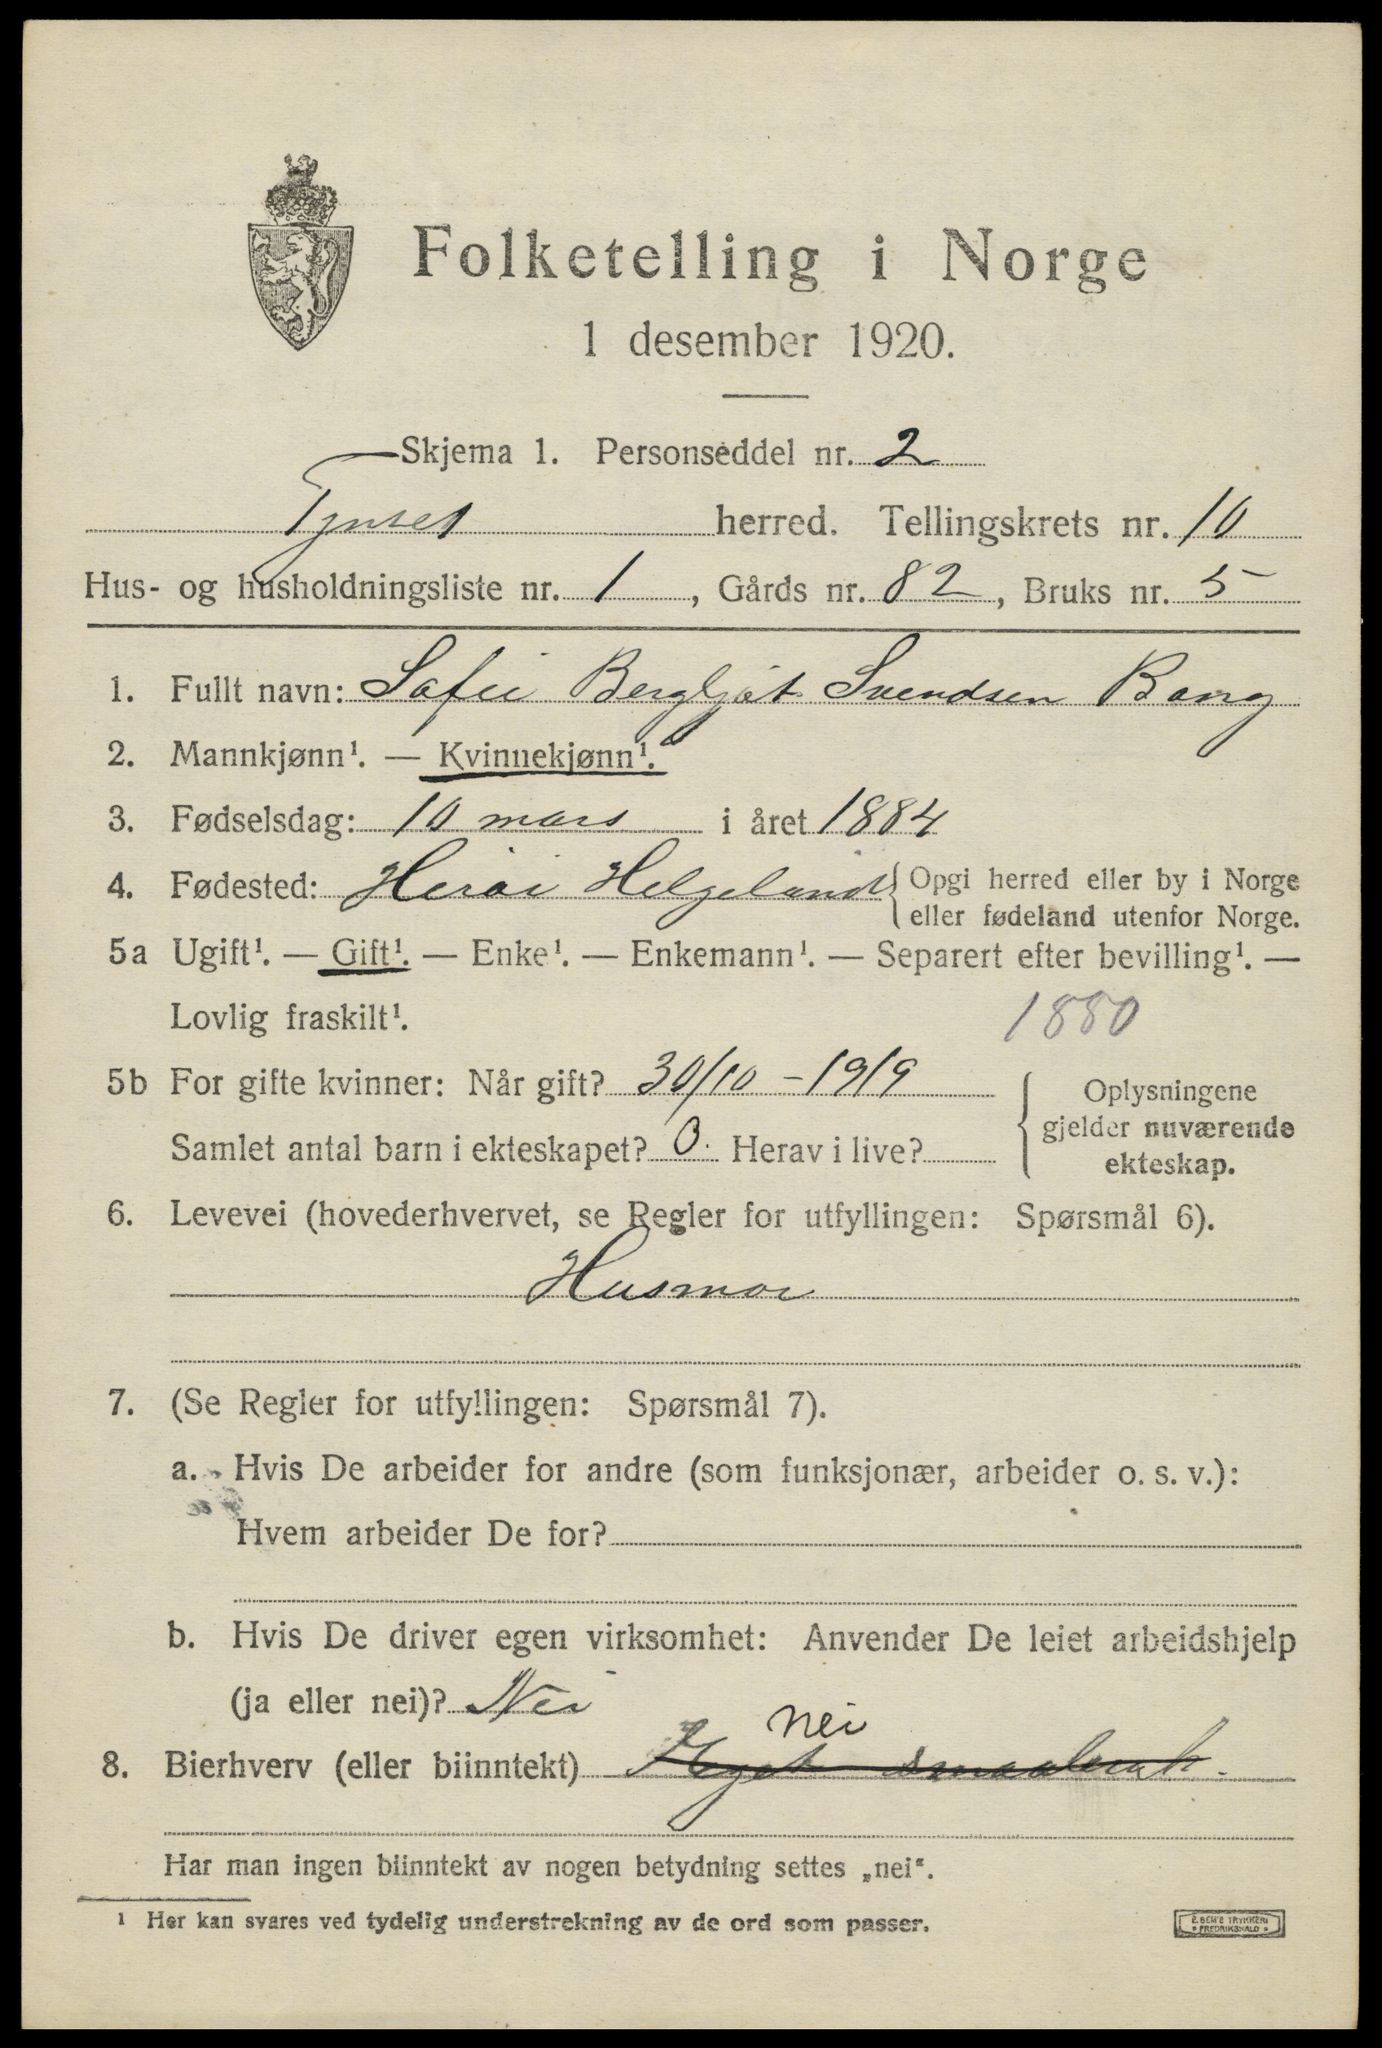 Folketelling i Norge
1 desember 1920.
Skjema 1. Personseddel nr. 2
Tynset herred. Tellingskrets nr. 10
Hus- og husholdningsliste nr. 1, Gårds nr. 82, Bruks nr. 5
1. Fullt navn: Sofie Bergljót Svendsen Bang
2. Mannkjønn¹. — Kvinnekjønn¹.
3. Fødselsdag: 10 mars i året 1884
4. Fødested: Herøi Helgeland { Opgi herred eller by i Norge
eller fødeland utenfor Norge.
5a Ugift¹. — Gift¹. — Enke¹. — Enkemann¹. — Separert efter bevilling¹. —
Lovlig fraskilt¹. 1880
5b For gifte kvinner: Når gift? 30/10 - 1919
Samlet antal barn i ekteskapet? 0. Herav i live?
{ Oplysningene
gjelder nuværende
ekteskap.
6. Levevei (hovederhvervet, se Regler for utfyllingen: Spørsmål 6).
Husmor
7. (Se Regler for utfyllingen: Spørsmål 7).
a. Hvis De arbeider for andre (som funksjonær, arbeider o. s. v.):
Hvem arbeider De for?
b. Hvis De driver egen virksomhet: Anvender De leiet arbeidshjelp
(ja eller nei)? Nei
nei
8. Bierhverv (eller biinntekt)
Har man ingen biinntekt av nogen betydning settes „nei“.
¹ Her kan svares ved tydelig understrekning av de ord som passer.
E. SEM'S TRYKKERI
* FREDRIKSHALD *